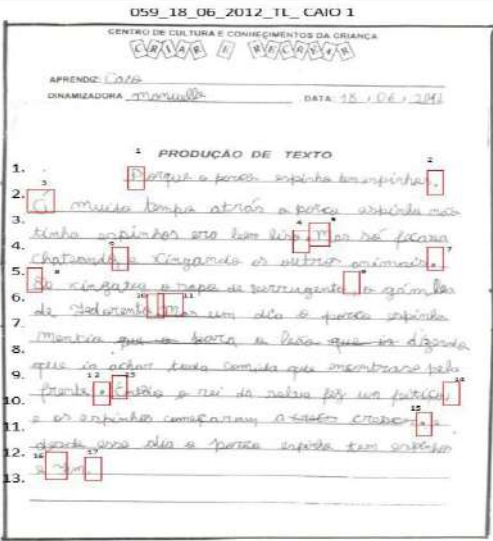 059_18_06_2012_TL_ CAIO 1
CENTRO DE CULTURA E CONHECIMENTOS DA CRIANÇA
CRIAR E RECREAR
APRENDIZ: Caio
DINAMIZADORA manuella DATA 18 / 06 / 2012
PRODUÇÃO DE TEXTO
1 2
1. Porque o porco espinho tem espinhos.
3
2. Á muito tempo atrás o porco espinho não
4 5
3. tinha espinhos era bem liso Mas só ficava
6 7
4. chateando e xingando os outros animais.
8 9
5. Se xingava o sapo de verruguento, o gambá
10 11
6. de Fedorento Mas um dia o porco espinho
7. mentiu para o leão dizendo
8. que ia achar toda comida que encontrava pela
12 13 14
9. frente. Então o rei da selva fez um feitiço
15
10. e os espinhos começaram a crescer. e
11. desde esse dia o porco espinho tem espinhos
16 17
12. e fim.
13.